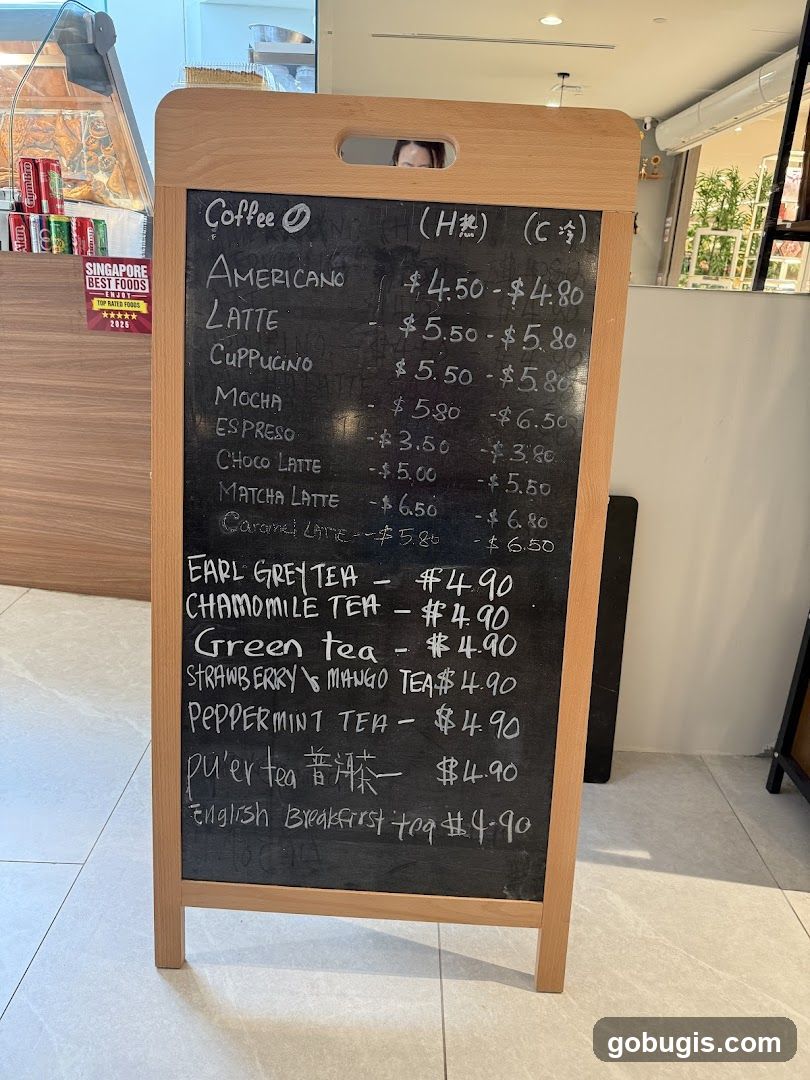 Coffee (H热) (C 冷)
AMERICANO $4.50 - $4.80
LATTE - $5.50 - $5.80
CUPPUCINO $5.50 - $5.80
MOCHA - $5.80 - $6.50
ESPRESO - $3.50 - $3.80
CHOCO LATTE - $5.00 - $5.50
MATCHA LATTE - $6.50 - $6.80
Caramel LATTE -- $5.80 - $6.50
EARL GREY TEA - $4.90
CHAMOMILE TEA - $4.90
Green tea - $4.90
STRAWBERRY \ MANGO TEA $4.90
PEPPERMINT TEA - $4.90
pu'er tea 普洱茶 — $4.90
English Breakfirst tea $4.90
SINGAPORE
BEST FOODS
ENJOY
TOP RATED FOODS
2025
gobugis.com